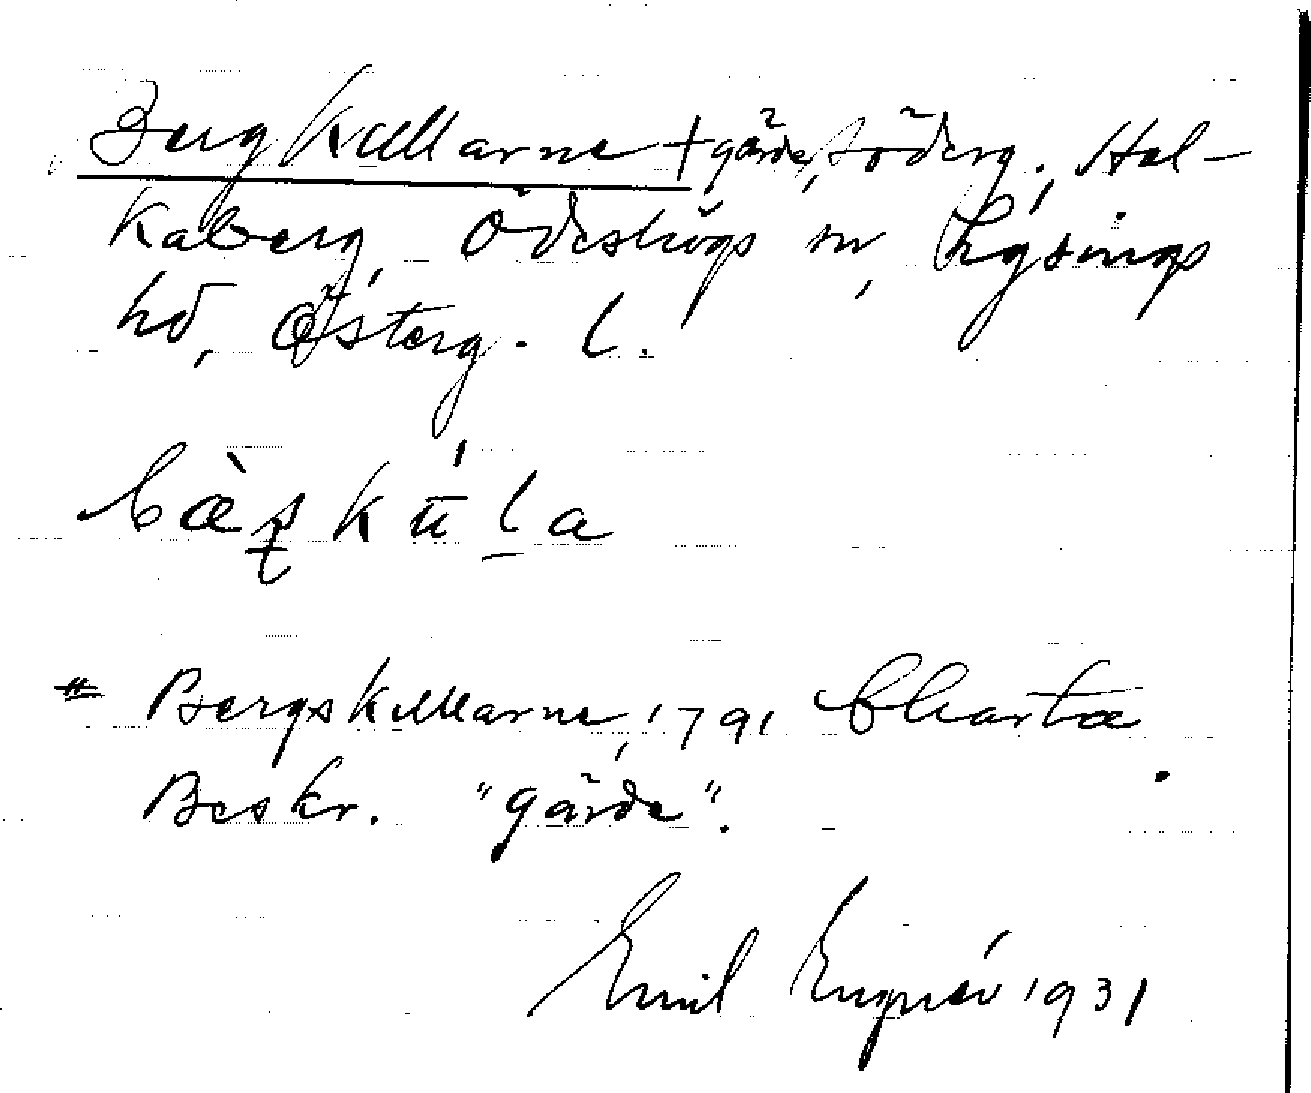 Bergkullarne + gärde, Söderg., Hol-
kaberg, Ödeshögs sn, Lysings
hd, Österg. l.
bæ̀rkūla
Bergskullarne, 1791 Charta
Beskr. "gärde".
Emil 1931